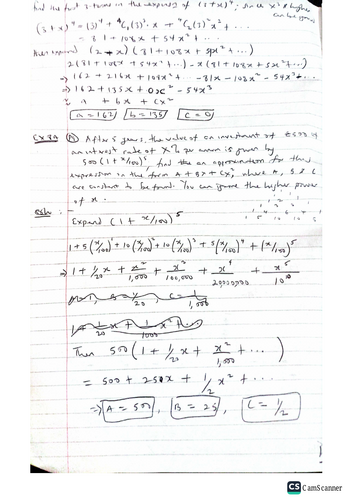 find the first 3 terms in the expansion of
(3 + x)⁴ = (3)⁴ + ⁴C₁(3)³·x + ⁴C₂(3)²x² + ...
= 81 + 108x + 54x² + ...
(2 - x)(81 + 108x + 54x² + ...)
2(81 + 108x + 54x² + ...) - x(81 + 108x + 54x² + ...)
⇒ 162 + 216x + 108x² - 81x - 108x² - 54x³
⇒ 162 + 135x + 0x² - 54x³
a + bx + cx²
a = 162 b = 135 c = 0
After 5 years, the value of an investment of £500 at
an interest rate of X% per annum is given by
500(1 + x/100)⁵, find an approximation for this
expression in the form A + Bx + Cx², where A, B & C
are constants to be found. You can ignore the higher powers
of x.
Expand (1 + x/100)⁵
1 + 5(x/100) + 10(x/100)² + 10(x/100)³ + 5(x/100)⁴ + (x/100)⁵
⇒ 1 + 1/20 x + x²/1,000 + x³/100,000 + x⁴/20000000 + x⁵/10¹⁰
Then 500(1 + 1/20 x + x²/1,000 + ...)
= 500 + 25x + 1/2 x² + ...
⇒ A = 500, B = 25, C = 1/2
CS CamScanner